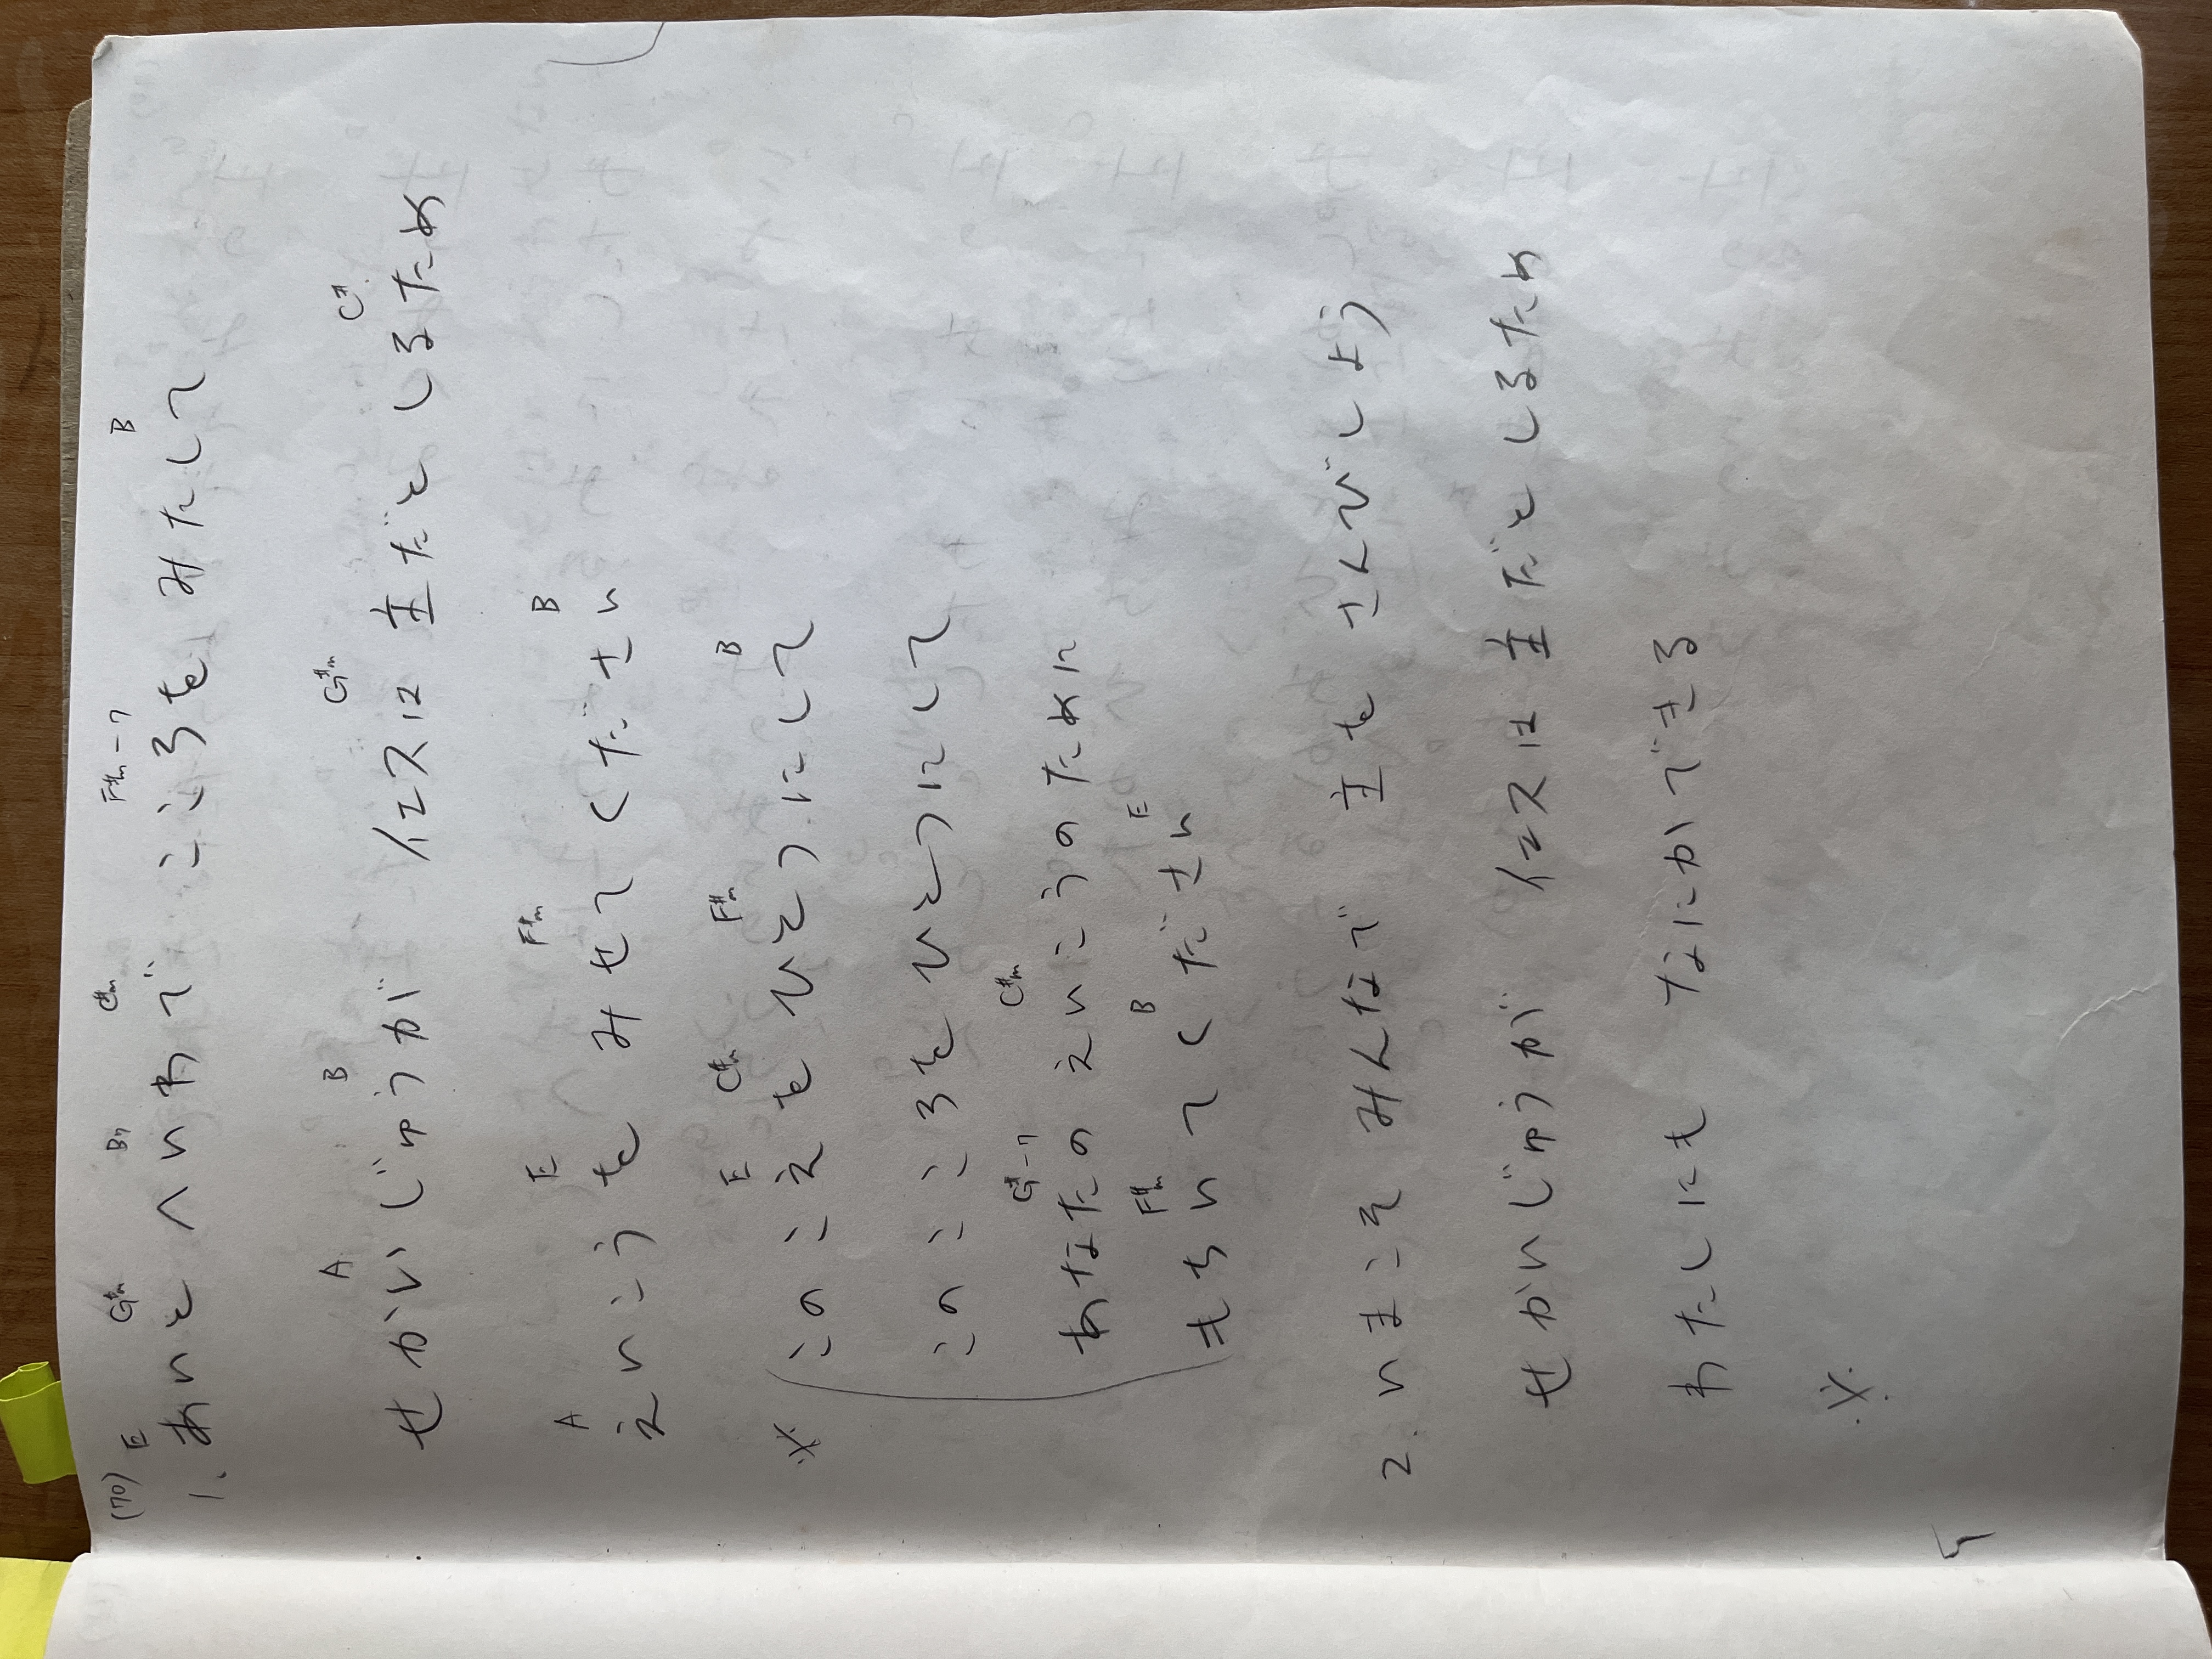 (70)
E G#m B7 C#m F#m-7 B
1. あいと へいわで こころを みたして
A B G#m C#
せかいじゅうが イエスは 主だと しるため
A E F#m B
えいこうを みせてください
E C#m F#m B
※ このこえを ひとつにして
このこころを ひとつにして
G#-7 C#m
あなたの えいこうのために
F#m B E
もちいてください
2. いまこそ みんなで 主を さんびしよう
せかいじゅうが イエスは 主だと しるため
わたしにも なにかできる
※